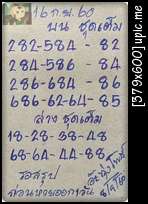 16 ก.ย. 60
บน ชุดเต็ม
282-584 - 82
284-586 - 84
286-684 - 86
686-62-64 - 85
ล่าง ชุดเต็ม
18-28-38-48
68-64-44-88
รอสรุป
ก่อนหวยออกจริง
[379x600] upic.me